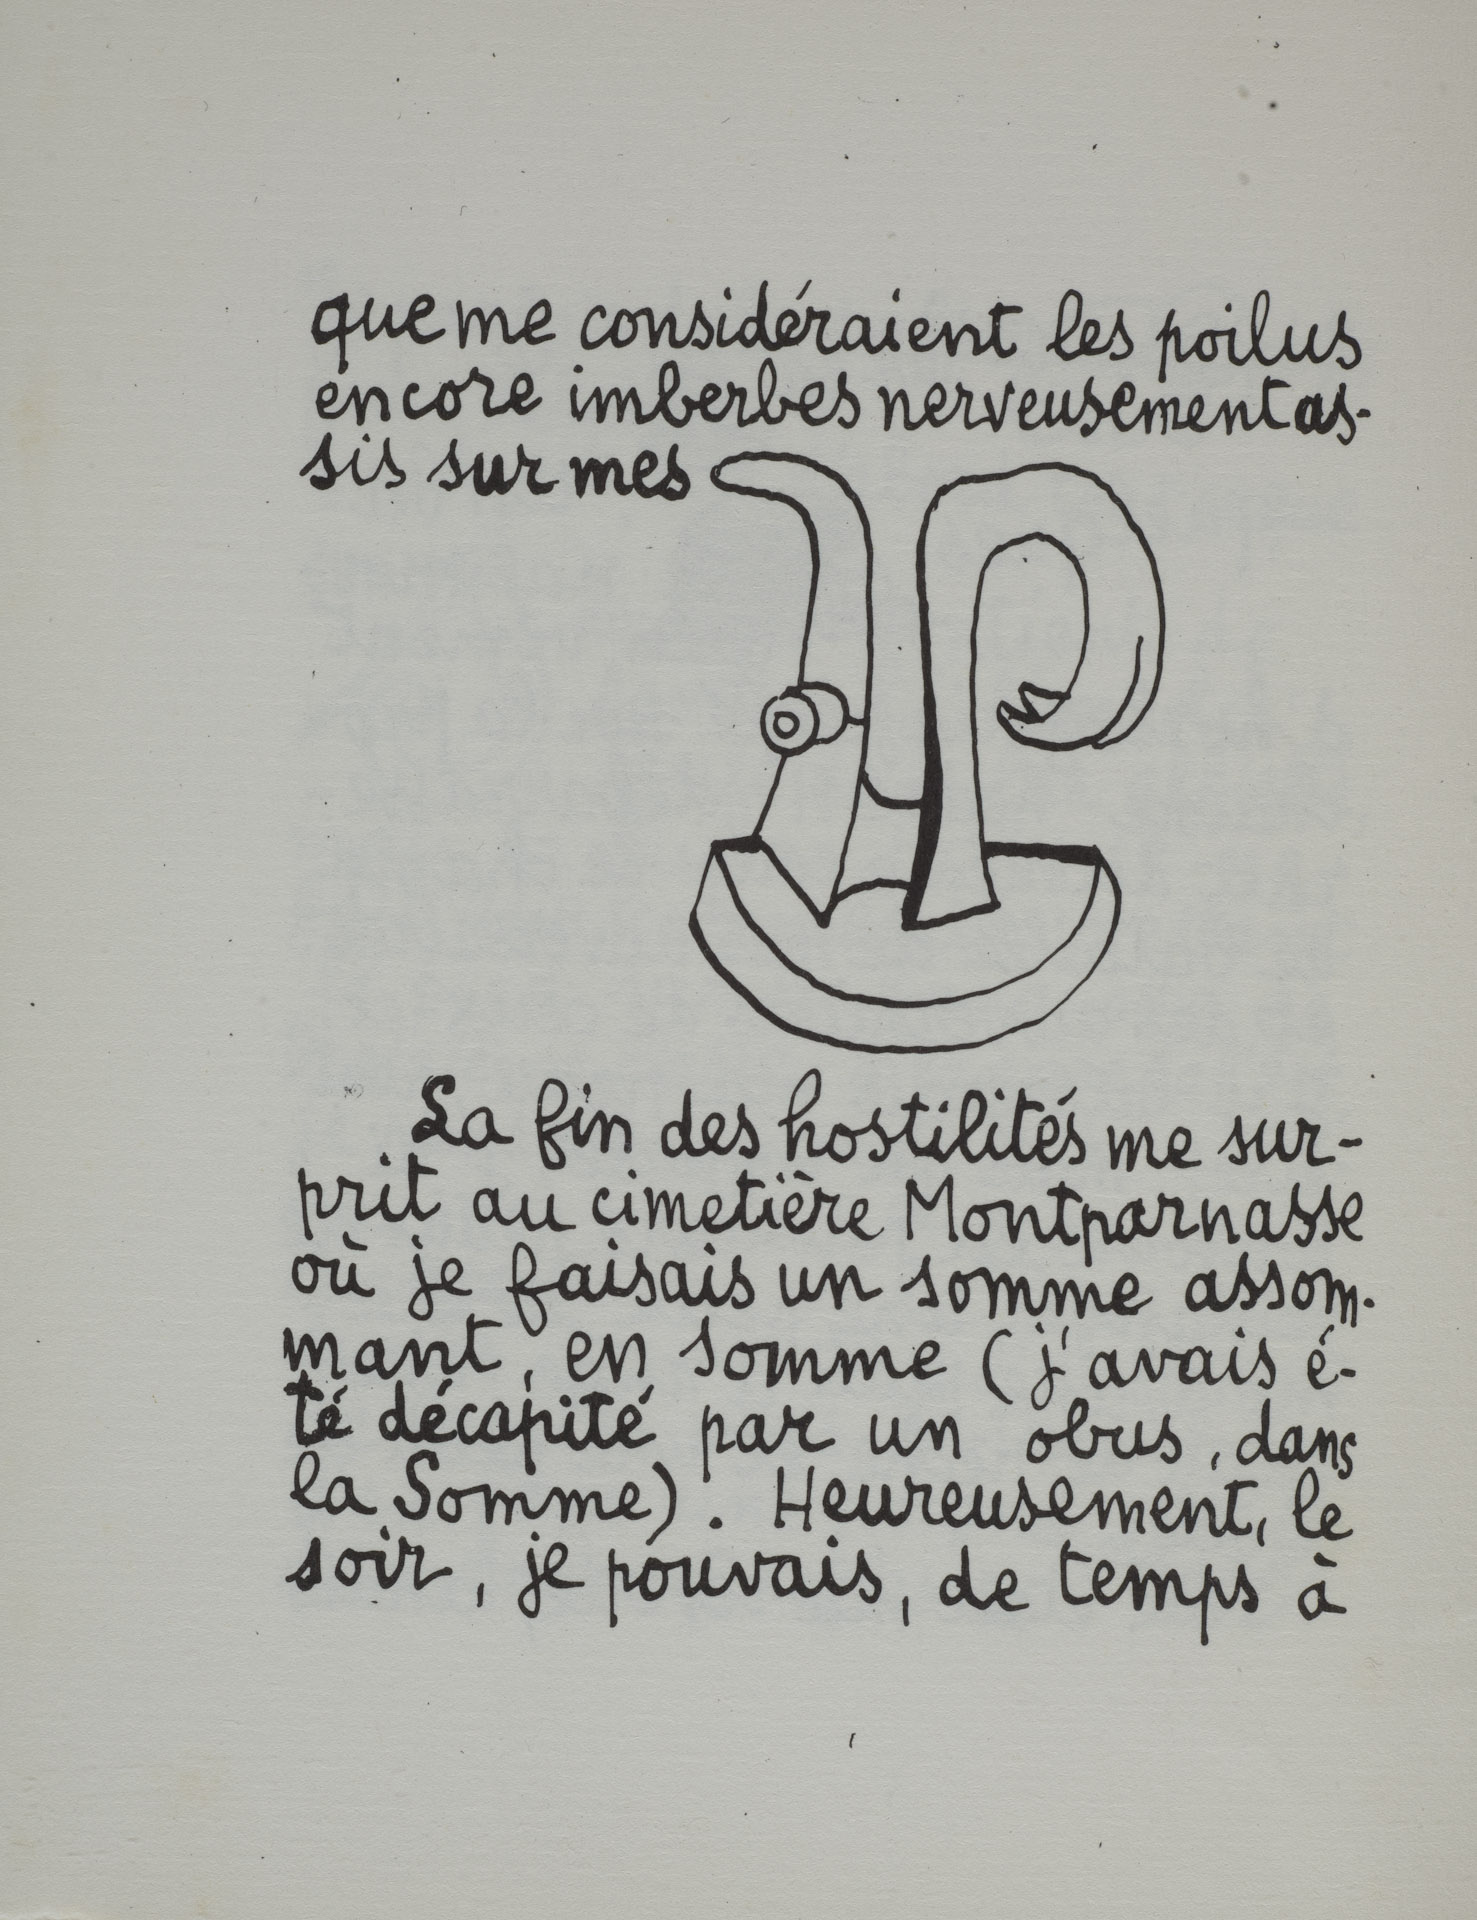 que me considéraient les poilus
encore imberbes nerveusement as-
sis sur mes
La fin des hostilités me sur-
prit au cimetière Montparnasse
où je faisais un somme assom-
mant, en somme (j'avais é-
té décapité par un obus, dans
la Somme). Heureusement, le
soir, je pouvais, de temps à